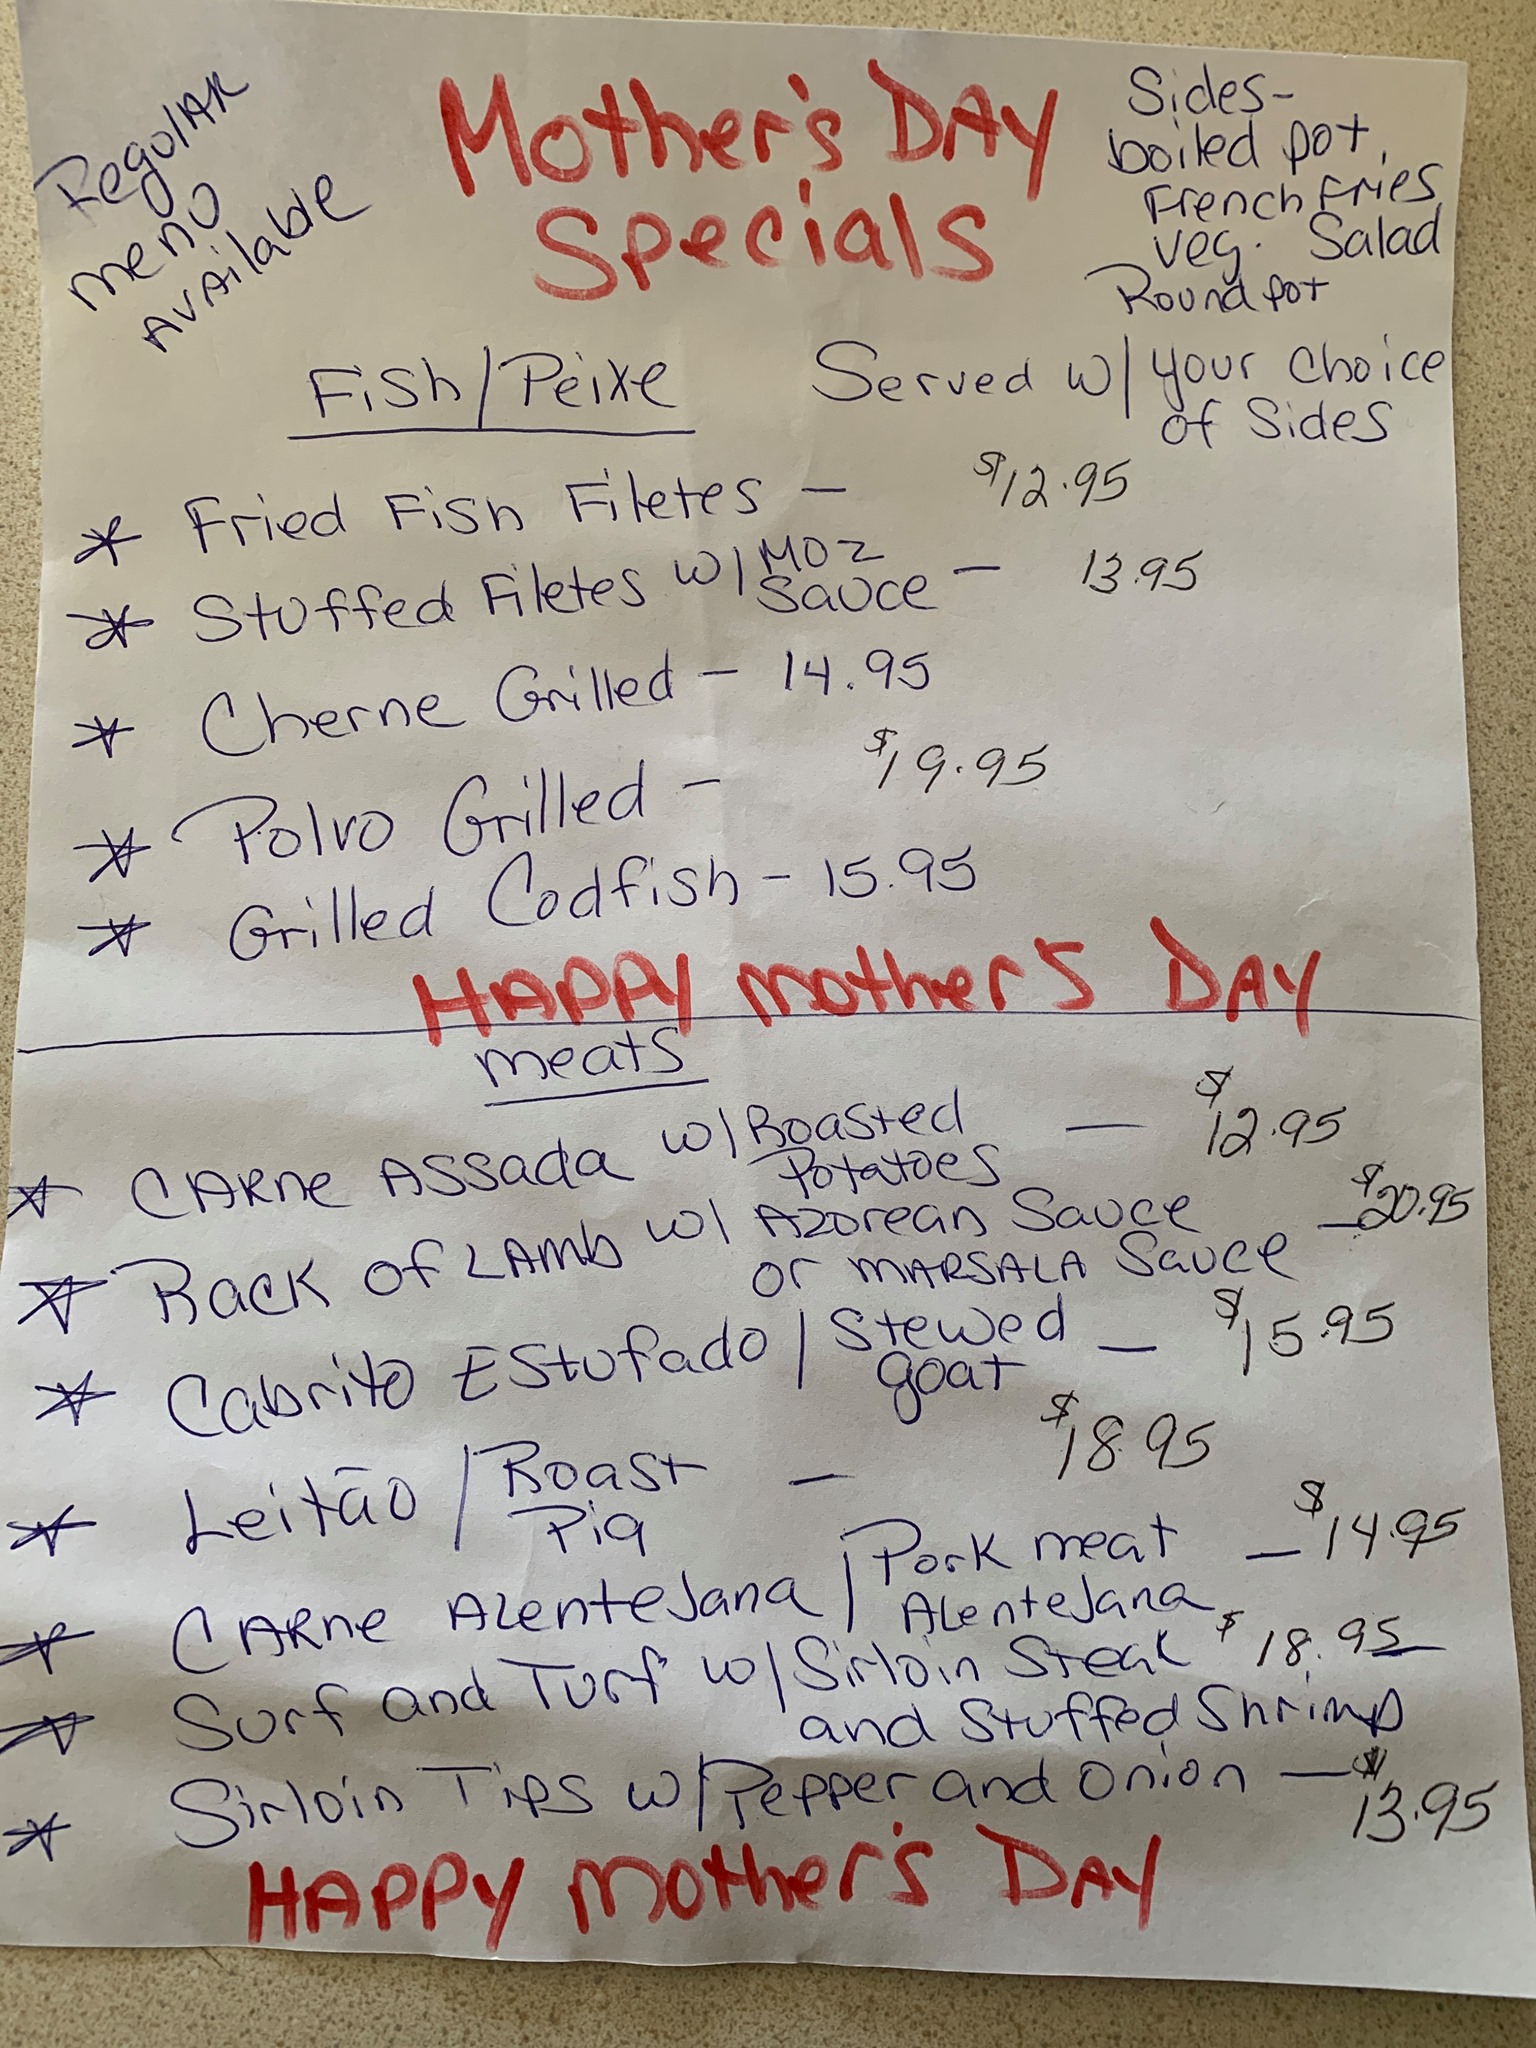 Regular
menu
Available
Mother's DAY
Specials
Sides-
boiled pot,
French Fries,
Veg. Salad
Round pot
Fish/Peixe
Served w/ your choice
of Sides
* Fried Fish Filetes - $12.95
* Stuffed Filetes w/ MOZ
Sauce - 13.95
* Cherne Grilled - 14.95
* Polvo Grilled - $19.95
* Grilled Codfish - 15.95
HAPPY mother's DAY
meats
* CARne ASSada w/ Roasted
Potatoes - $12.95
* Rack of LAmb w/ Azorean Sauce
or MARSALA Sauce - $20.95
* Cabrito EStufado / Stewed
goat - $15.95
* Leitão / Roast
Pig - $18.95
* CARne Alentejana / Pork meat
Alentejana - $14.95
* Surf and Turf w/ Sirloin Steak $18.95
and Stuffed Shrimp
* Sirloin Tips w/ Pepper and Onion - $13.95
HAPPY mother's DAY